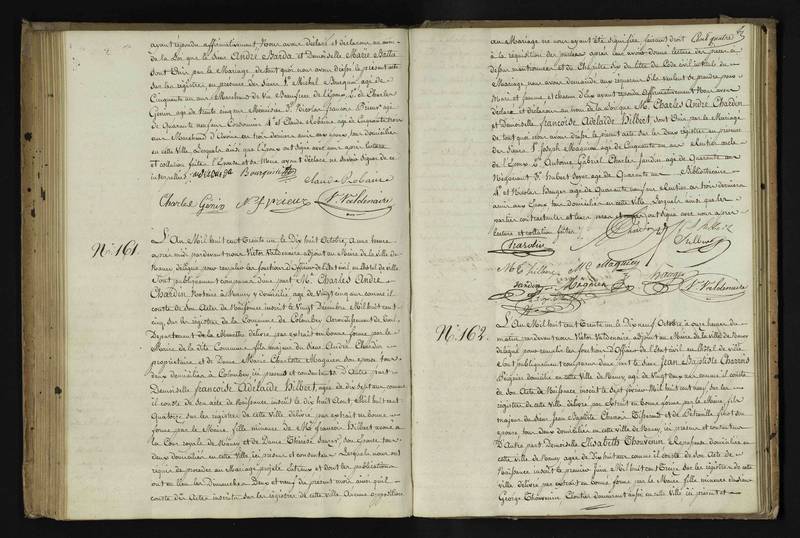 ayant répondu affirmativement, Nous avons déclaré et déclarons au nom
de la Loi que le Sieur André Barda et Demoiselle Marie Batta
sont Unis par le Mariage, de tout quoi nous avons dressé le présent acte
sur les registres, en présence des Sieurs 1° Michel Bourguin agé de
Cinquante un ans, Marchand de Vin Beaufrère de l'Epoux, 2° de Charles
Génin, agé de trente cinq ans, Menuisier, 3° Nicolas francois
de Quarante neuf ans Cordonnier, 4° et Claude Robaire agé de Cinquante
ans Marchand
en cette Ville, Lesquels ainsi que l'Epoux ont signé avec nous après lecture
et collation faites. l'Epouse et sa Mère ayant déclaré ne savoir Signer de ce
interpellées
Claude Robaire
Charles Génin
Vr. Valdenaire
N° 161.
L'An Mil huit cent Trente un le Dix huit Octobre, a une heure
après midi pardevant nous Victor Valdenaire adjoint au Maire de la ville de
Nancy délégué pour remplir les fonctions d'Officier de l'état civil en l'hôtel de ville
Sont publiquement comparus d'une part Mr. Charles André
Chardin, Notaire à Nancy y domicilié, agé de Vingt cinq ans comme il
conste de son Acte de Naissance inscrit le Vingt Décembre Mil huit cent
cinq, sur les registres de la Commune de Colombey Arrondissement de Toul,
Département de la Meurthe délivré par extrait en bonne forme par le
Maire de la dite Commune, fils majeur du Sieur André Chardin
propriétaire et de Dame Marie Charlotte Magnien son épouse tous
deux domiciliés à Colombey, ici présens et consentans D'Autre part
Demoiselle francoise Adelaide hilbert, agée de dix sept ans comme
il conste de son acte de Naissance inscrit le dix huit Aout Mil huit cent
Quatorze sur les registres de cette ville, délivré par extrait en bonne
forme par le Maire, fille mineure de Mr. francois hilbert avoué à
la Cour royale de Nancy et de Dame Thérèse son épouse tous
deux domiciliés en cette Ville, ici présens et consentans Lesquels nous ont
requis de procéder au Mariage projeté entr'eux et dont les publications
ont eu lieu les Dimanches Deux et neuf du présent mois ainsi qu'il
conste d'un Acte inscrit sur les registres de cette ville. Aucune opposition
au Mariage ne nous ayant été signifiée, faisant droit Cent quatre
à la réquisition des parties après avoir donné lecture des pièces ci
dessus mentionnées et du Chapitre six du titre du Code civil intitulé du
Mariage, nous avons demandé aux requérans s'ils veulent se prendre pour
Mari et femme, et chacun d'eux ayant répondu affirmativement Nous avons
déclaré et déclarons au nom de la Loi que Mr. Charles André Chardin
et Demoiselle, francoise Adelaide hilbert, sont Unis par le Mariage
de tout quoi nous avons dressé le présent acte sur les deux registres en présence
des Sieurs 1° Joseph Magnien agé de Cinquante un ans Rentier oncle
de l'Epoux, 2° Antoine Gabriel Charles Jandin agé de Quarante ans
Négociant, 3° hubert agé de Quarante un Bibliothécaire
4° et Nicolas hanger agé de Quarante neuf ans Rentier, ces trois derniers
amis aux Epoux tous domiciliés en cette Ville, Lesquels ainsi que les
parties contractantes et leurs pères et mères ont signé avec nous après
lecture et collation faites.
Chardin
hilbert
Magnien
hanger
Vr. Valdenaire
N° 162.
L'An Mil huit cent Trente un le Dix neuf Octobre à onze heures du
matin pardevant nous Victor Valdenaire adjoint au Maire de la ville de Nancy
délégué pour remplir les fonctions d'Officier de l'état civil en l'hôtel de ville,
Sont publiquement comparus d'une part le Sieur Jean Baptiste Charrois
domicilié en cette Ville de Nancy agé de Vingt deux ans comme il conste
de son Acte de Naissance inscrit le Sept Mil huit cent neuf sur les
registres de cette Ville délivré par extrait en bonne forme par le Maire, fils
majeur du Sieur Jean Baptiste Charrois Tisserand et de Pétronille son
épouse tous deux domiciliés en cette ville de Nancy, ici présens et consentans
D'Autre part Demoiselle Elisabeth Thouvenin domiciliée en
cette ville de Nancy agée de Dix huit ans comme il conste de son Acte de
Naissance inscrit le premier Juin Mil huit cent Treize sur les registres de cette
ville délivré par extrait en bonne forme par le Maire, fille mineure du Sieur
George Thouvenin Cloutier demeurant aussi en cette Ville ici présent et